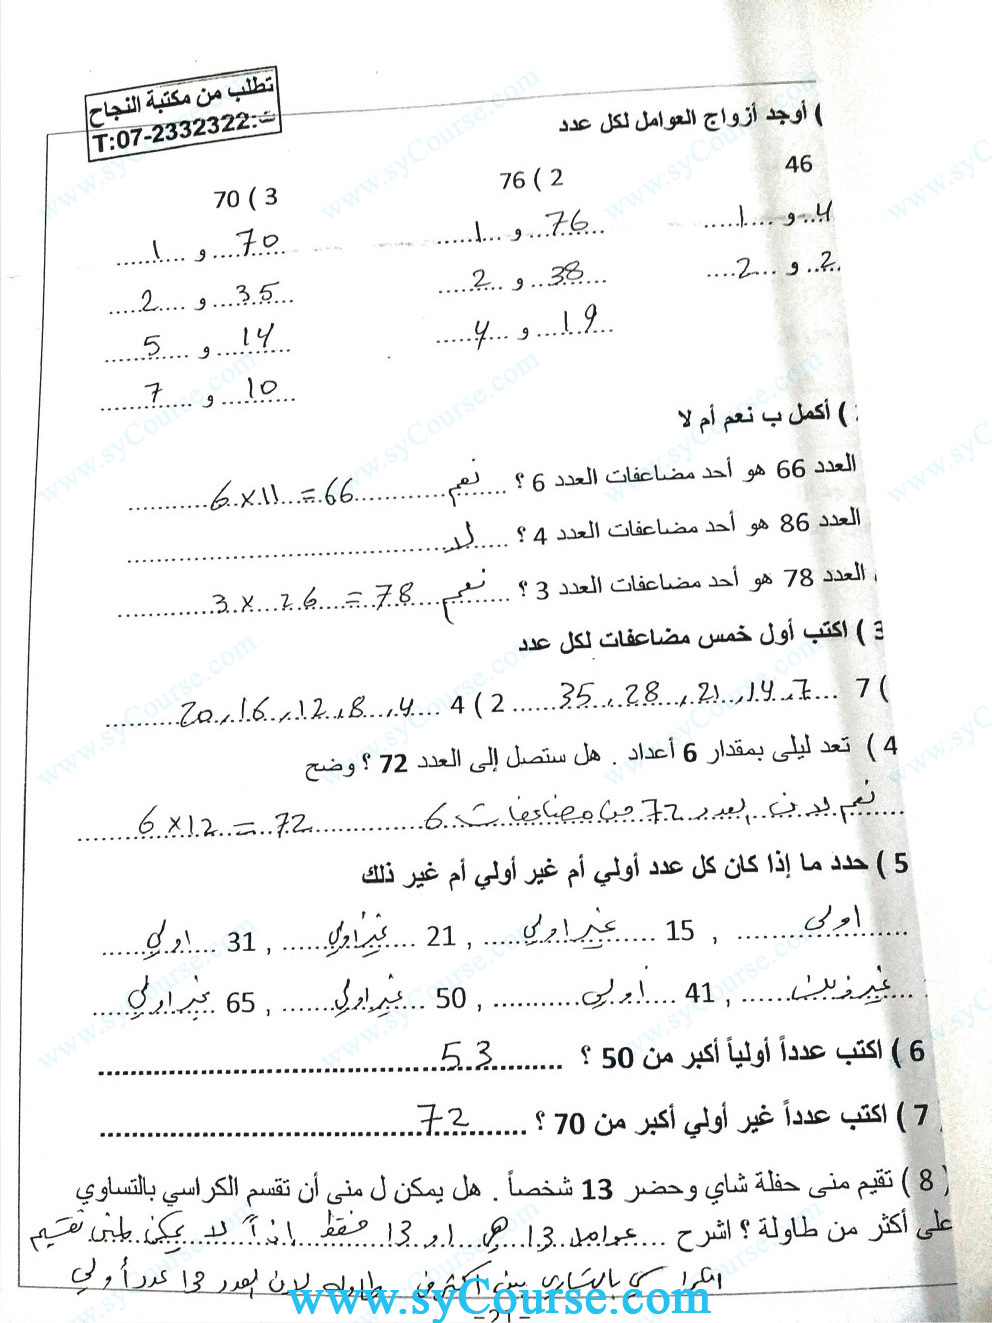 تطلب من مكتبة النجاح
T:07-2332322:ت
) أوجد أزواج العوامل لكل عدد
46
2 ) 76
3 ) 70
4 و 1
76 و 1
70 و 1
2 و 2
38 و 2
35 و 2
19 و 4
14 و 5
10 و 7
) أكمل ب نعم أم لا
العدد 66 هو أحد مضاعفات العدد 6 ؟ نعم 6 × 11 = 66
العدد 86 هو أحد مضاعفات العدد 4 ؟ لا
العدد 78 هو أحد مضاعفات العدد 3 ؟ نعم 3 × 26 = 78
3 ) اكتب أول خمس مضاعفات لكل عدد
) 7 ... 7, 14, 21, 28, 35 ... 2 ) 4 ... 4, 8, 12, 16, 20
4 ) تعد ليلى بمقدار 6 أعداد . هل ستصل إلى العدد 72 ؟ وضح
نعم لان العدد 72 من مضاعفات 6 ... 6 × 12 = 72
5 ) حدد ما إذا كان كل عدد أولي أم غير أولي أم غير ذلك
اولي , 15 غير اولي , 21 غير أولي , 31 اولي
غير ذلك , 41 أولي , 50 غير اولي , 65 غير اولي
6 ) اكتب عدداً أولياً أكبر من 50 ؟ 53
7 ) اكتب عدداً غير أولي أكبر من 70 ؟ 72
8 ) تقيم منى حفلة شاي وحضر 13 شخصاً . هل يمكن ل منى أن تقسم الكراسي بالتساوي
على أكثر من طاولة ؟ اشرح عوامل 13 هي 1 و 13 فقط إذاً لا يمكن لمنى تقسيم
الكراسي بالتساوي بين أكثر من طاولة لان العدد 13 عدد أولي
www.syCourse.com
-21-